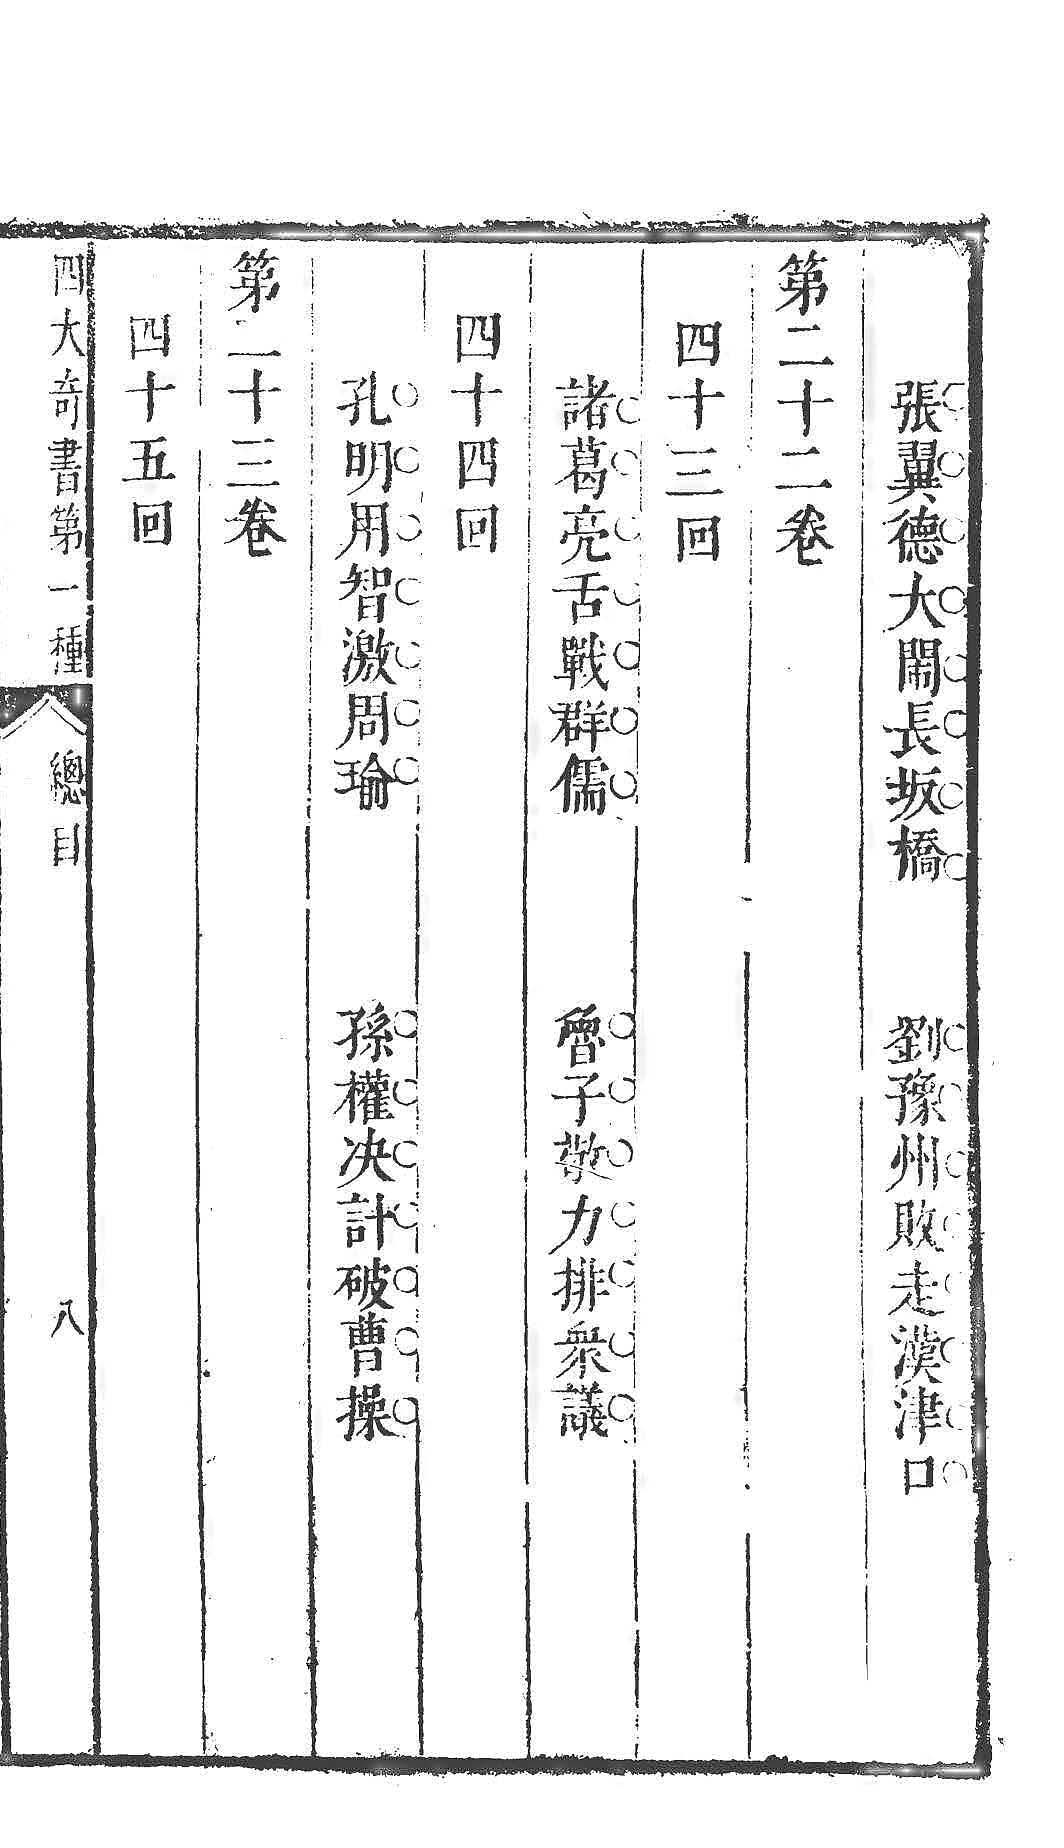 張翼德大閙長坂橋　劉豫州敗走漢津口
第二十二卷
四十三回
諸葛亮舌戰群儒　魯子敬力排衆議
四十四回
孔明用智激周瑜　孫權决計破曹操
第二十三卷
四十五回
四大奇書第一種　總目　八